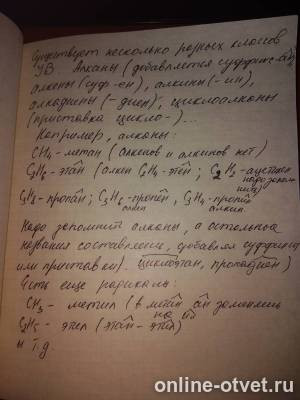 Существует несколько разных классов
УВ Алканы (добавляется суффикс -ан,
алкены (суф -ен), алкины (-ин),
алкодиены (-диен), циклоалканы
(приставка цикло-)...
Например, алканы:
CH4 - метан (алкенов и алкинов нет)
C2H6 - этан (алкен C2H4 - этен; C2H2 - ацетилен
надо запом-
нить)
C3H8 - пропан; C3H6 - пропен, C3H4 - пропин
алкен алкин.
Надо запомнить алканы, а остальное
названия составляешь, добавляя суффикс
или приставки). циклоэтан, пропадиен)
Есть еще радикалы:
CH3 - метил (в метан ан заменяешь
на ил
C2H5 - этил (этан - этил)
и т.д.
online-otvet.ru